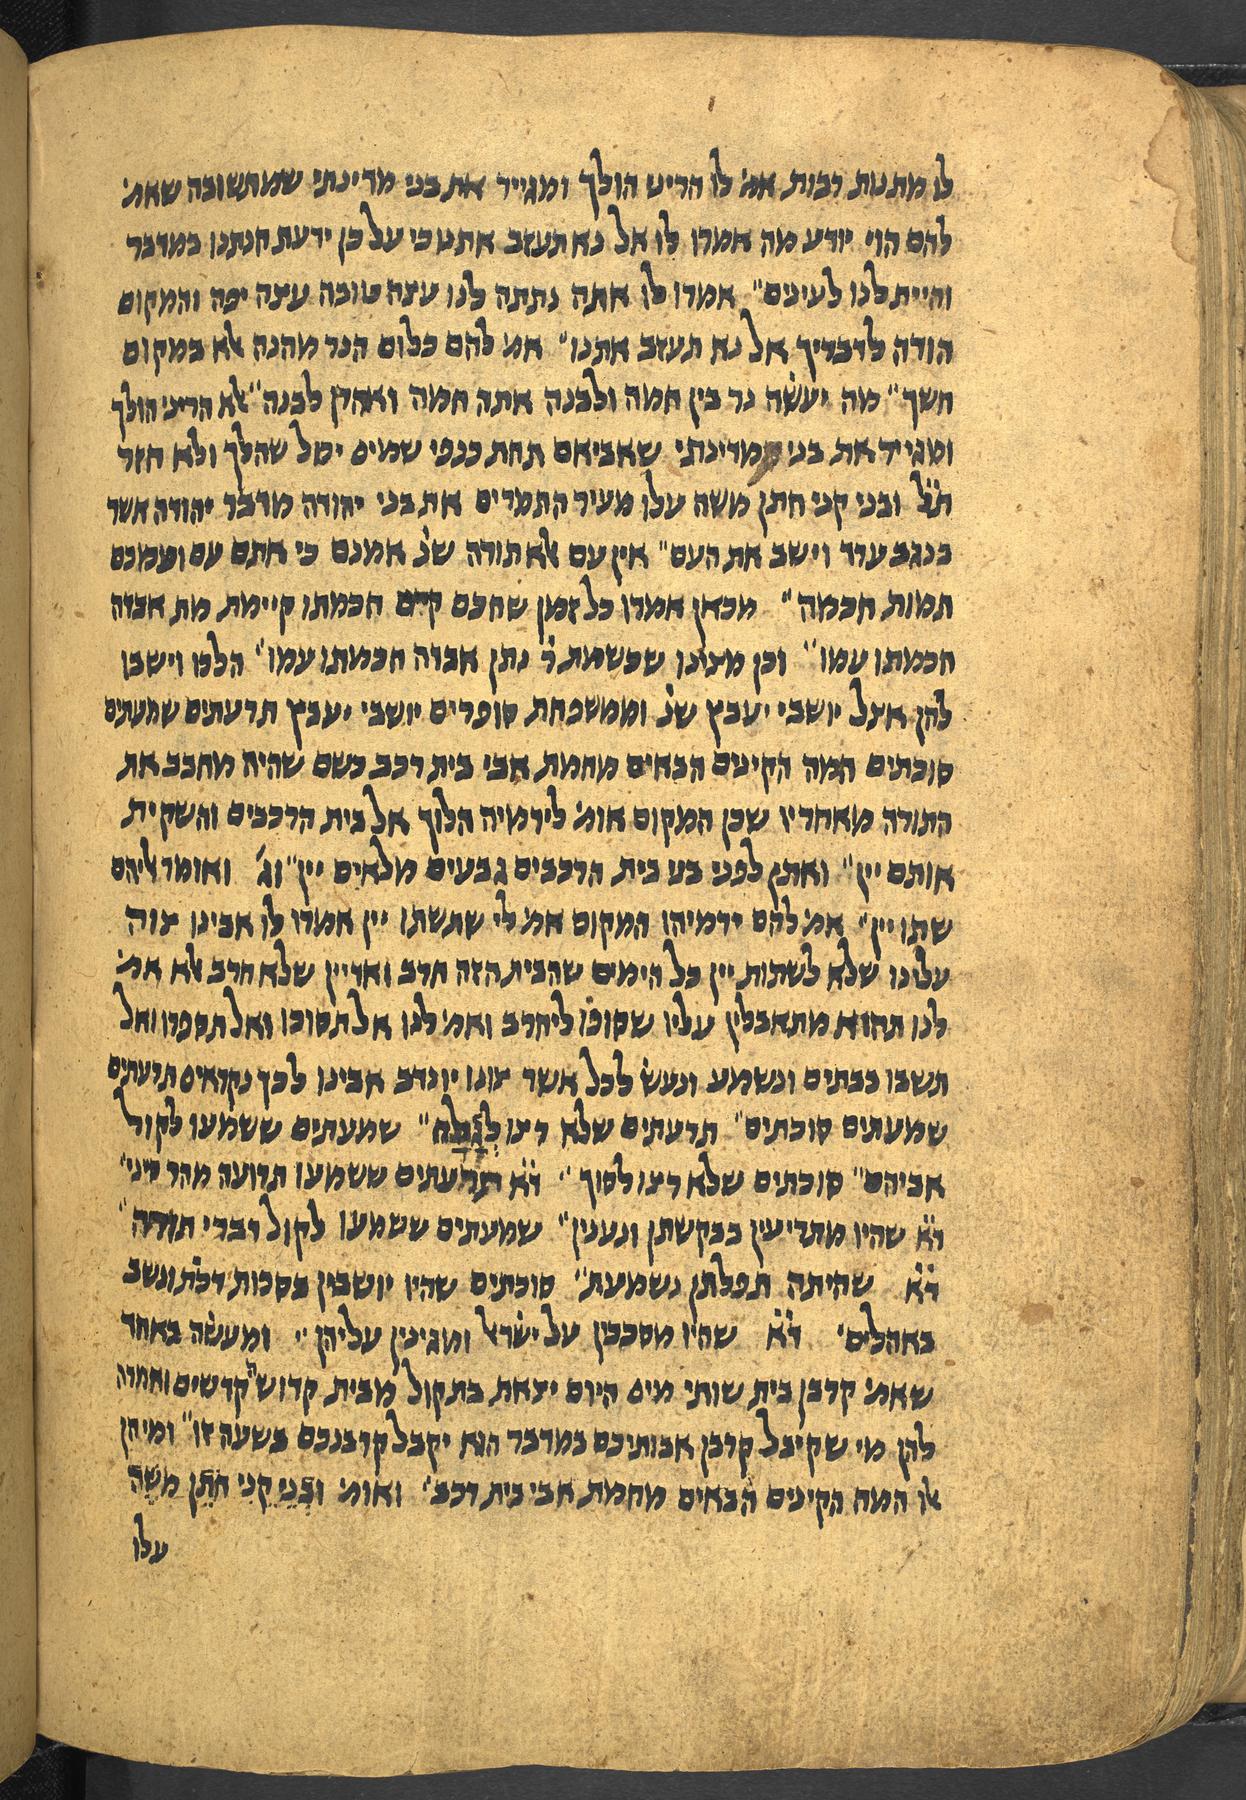 לו מתנות רבות אמ' לו הריני הולך ומגייר את בני מדינתי שמתשובה שאמ'
להם הוי יודע מה אמרו לו אל נא תעזב אתנו כי על כן ידעת חנתנו במדבר
והיית לנו לעינים" אמרו לו אתה נתתה לנו עצה טובה עצה יפה והמקום
הודה לדבריך אל נא תעזב אתנו" אמ' להם כלום הנר מהנה אלא במקום
חשך" מה יעשה נר בין חמה ולבנה אתה חמה ואהרן לבנה" אלא הריני הולך
ומגייר את בני מדינתי שאביאם תחת כנפי שמים יכול שהלך ולא חזר
ת"ל ובני קיני חתן משה עלו מעיר התמרים את בני יהודה מדבר יהודה אשר
בנגב ערד וישב את העם" אין עם אלא תורה שנ' אמנם כי אתם עם ועמכם
תמות חכמה" מכאן אמרו כל זמן שחכם קים חכמתו קיימת מת אבדה
חכמתו עמו" וכן מצינו שכשמת ר' נתן אבדה חכמתו עמו" הלכו וישבו
להן אצל יושבי יעבץ שנ' וממשפחת סופרים יושבי יעבץ תרעתים שמעתים
סוכתים המה הקינים הבאים מחמת אבי בית רכב כשם שהיה מחבב את
התורה מאחריו שכן המקום אומ' לירמיה הלוך אל בית הרכבים והשקית
אותם יין" ואתן לפני בני בית הרכבים גבעים מלאים יין" וג' ואומר אליהם
שתו יין" אמ' להם ירמיהו המקום אמ' לי שתשתו יין אמרו לו אבינו צוה
עלינו שלא לשתות יין כל הימים שהבית הזה חרב ואדיין שלא חרב אלא אמ'
לנו תהוא מתאבלין עליו שסופו ליחרב ואמ' לנו אל תסוכו ואל תספרו ואל
תשבו בבתים ונשמע ונעש לכל אשר צונו יונדב אבינו לכך נקראים תרעתים
שמעתים סוכתים" תרעתים שלא רצו לגלח" שמעתים ששמעו לקול
אביהם" סוכתים שלא רצו לסוך" ד"א תרעתים ששמעו תרועה מהר סיני"
ד"א שהיו מתריעין בבקשתן ונענין" שמעתים ששמעו לקול דברי תורה"
ד"א שהיתה תפלתן נשמעת" סוכתים שהיו יושבין בסכות דכת' ונשב
באהלים" ד"א שהיו מסככין על ישראל ומגינין עליהן" ומעשה באחד
שאמ' קרבן בית שותי מים היום יצאת בת קול מבית קדוש הקדשים ואמרה
להן מי שקיבל קרבן אבותיכם במדבר הוא יקבל קרבנכם בשעה זו" ומי הן
אלו המה הקינים הבאים מחמת אבי בית רכב" ואומ' ובני קני חתן משה
עלו